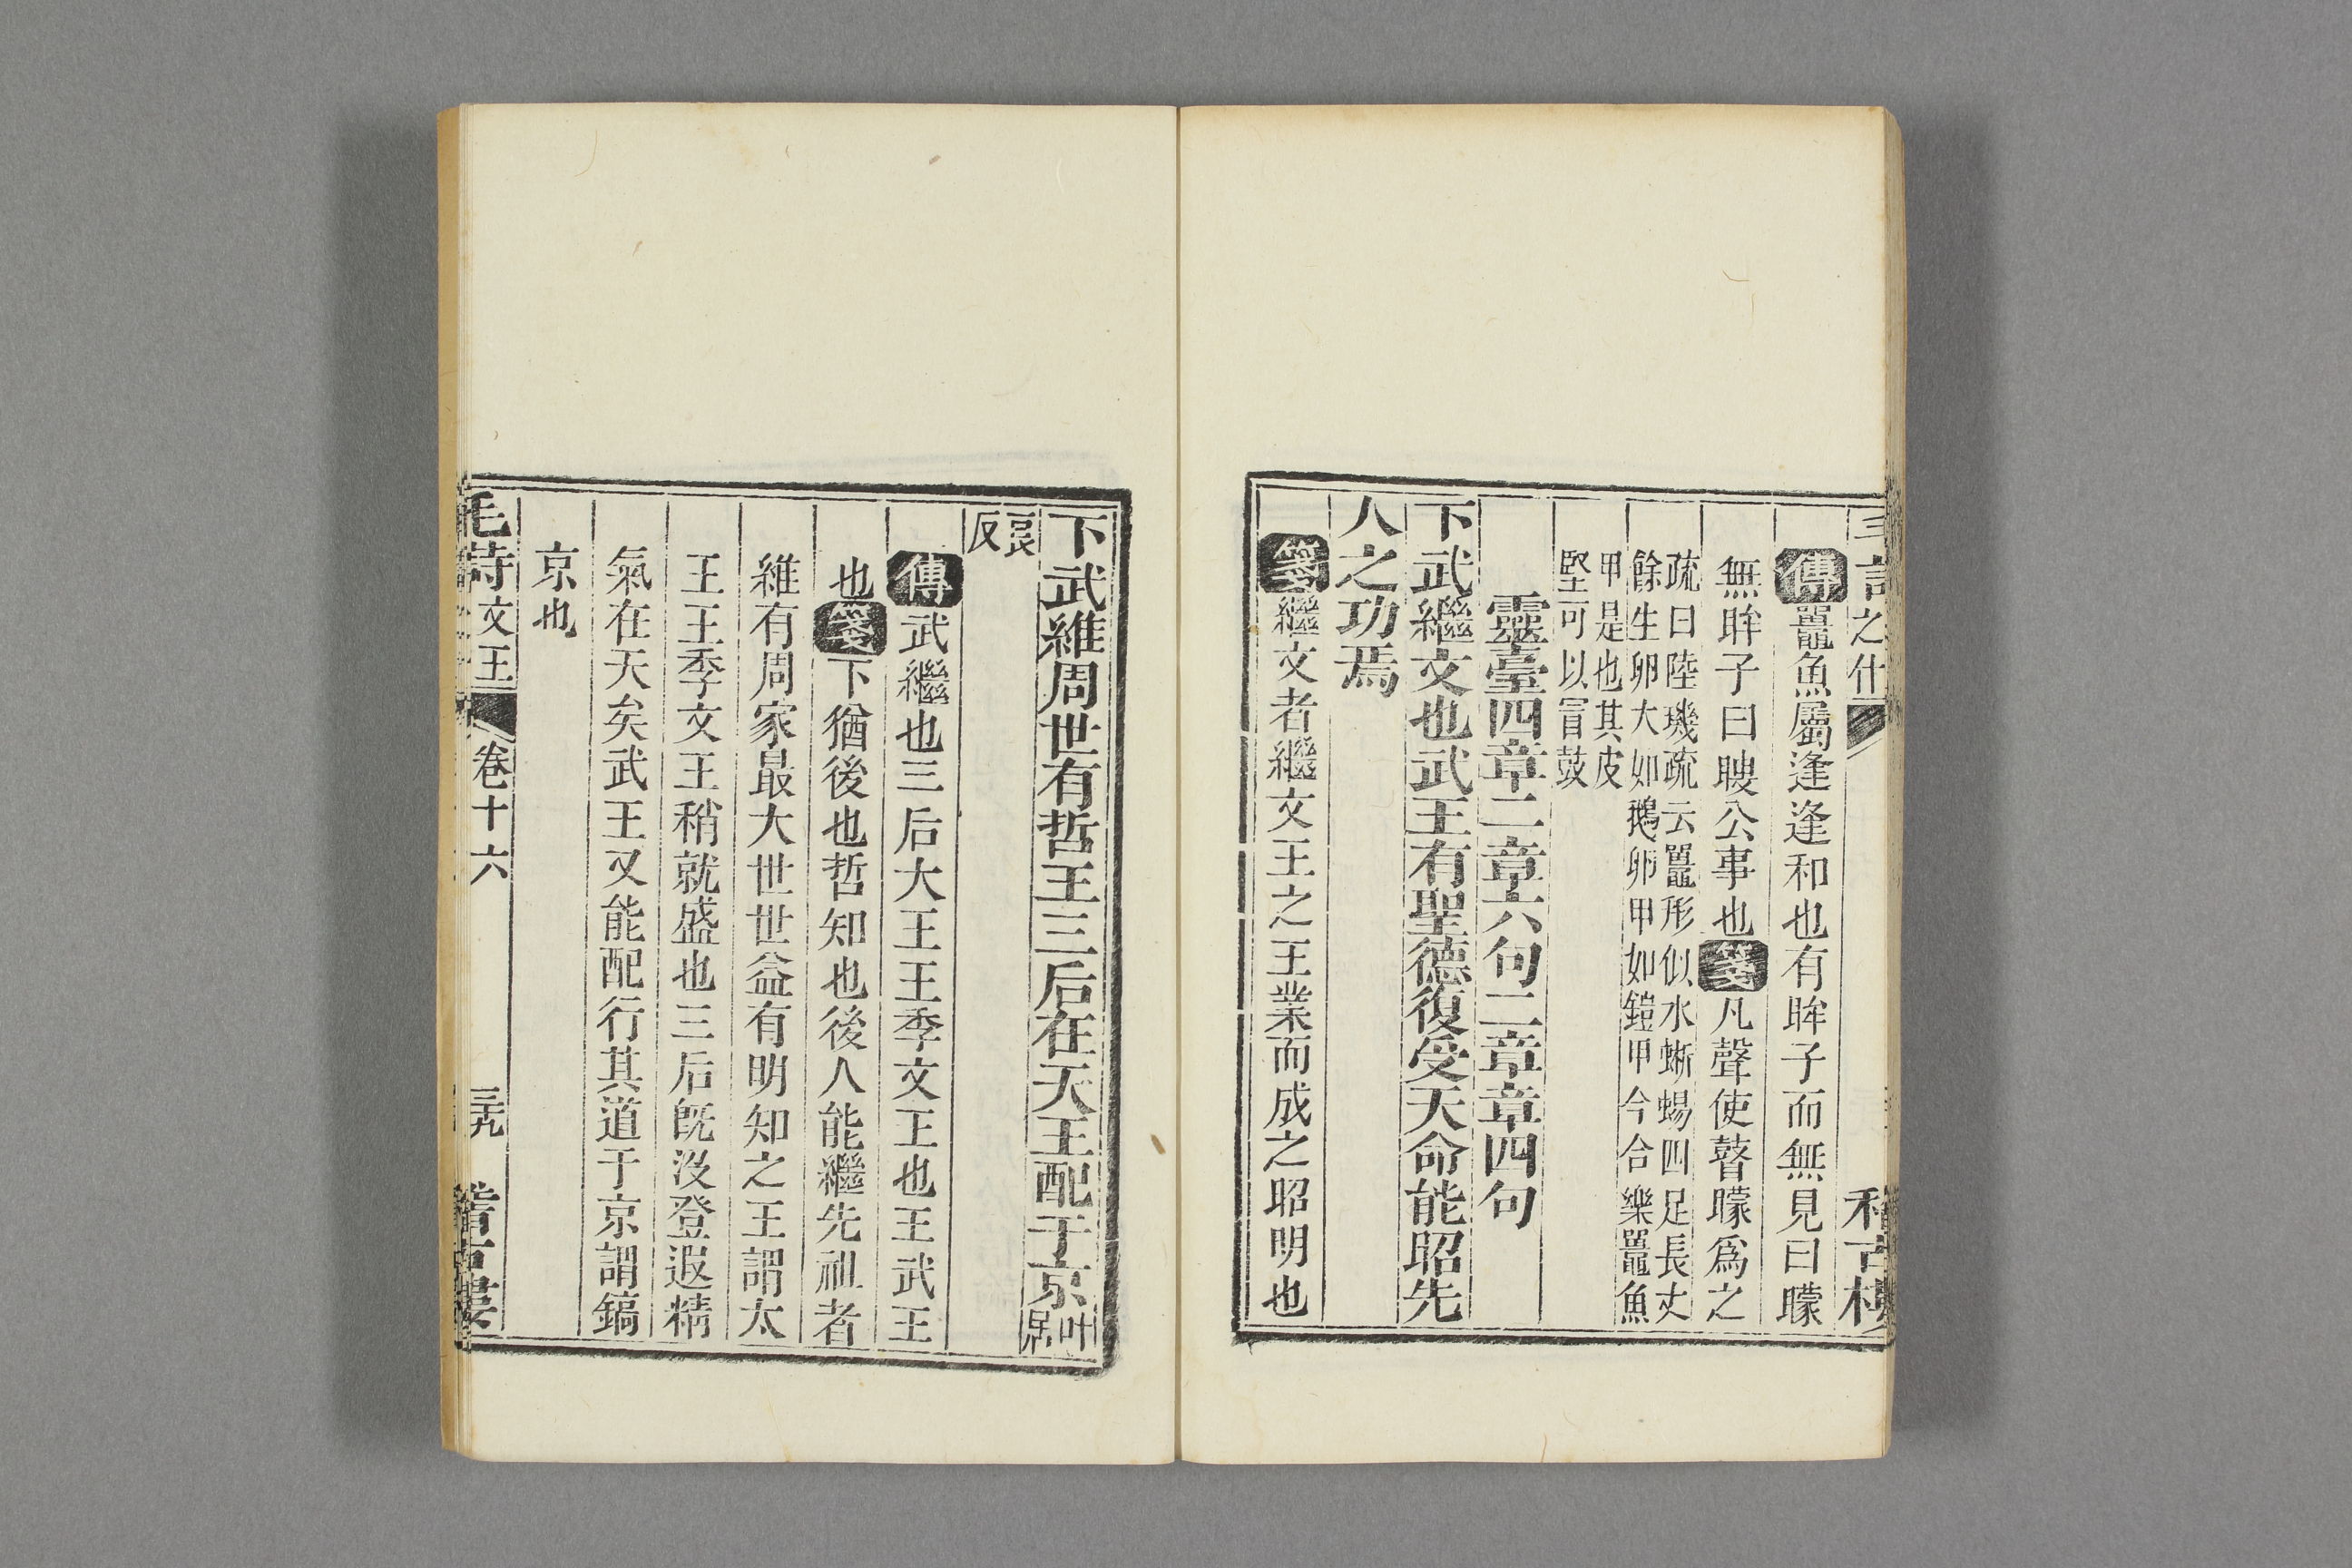 之什
稽古樓
傳鼉魚屬逢逢和也有眸子而無見曰矇
無眸子曰瞍公事也箋凡聲使瞽矇爲之
疏曰陸璣疏云鼉形似水蜥蜴四足長丈
餘生卵大如鵝卵甲如鎧甲今合樂鼉魚
甲是也其皮
堅可以冒鼓
靈臺四章二章六句二章章四句
下武繼文也武王有聖德復受天命能昭先
人之功焉
箋繼文者繼文王之王業而成之昭明也
下武維周世有哲王三后在天王配于京叶居
良反
傳武繼也三后大王王季文王也王武王
也箋下猶後也哲知也後人能繼先祖者
維有周家最大世世益有明知之王謂太
王王季文王稍就盛也三后旣沒登遐精
氣在天矣武王又能配行其道于京謂鎬
京也
毛詩文王 卷十六 三九 稽古樓